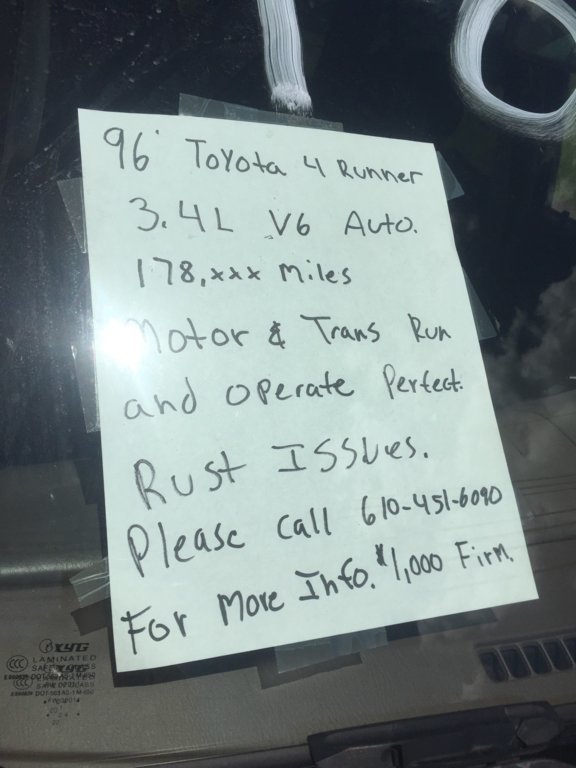 96' Toyota 4 Runner
3.4L V6 Auto.
178,xxx Miles
Motor & Trans Run
and operate Perfect.
Rust Issues.
Please call 610-451-6090
For More Info. $1,000 Firm.
XYG
LAMINATED